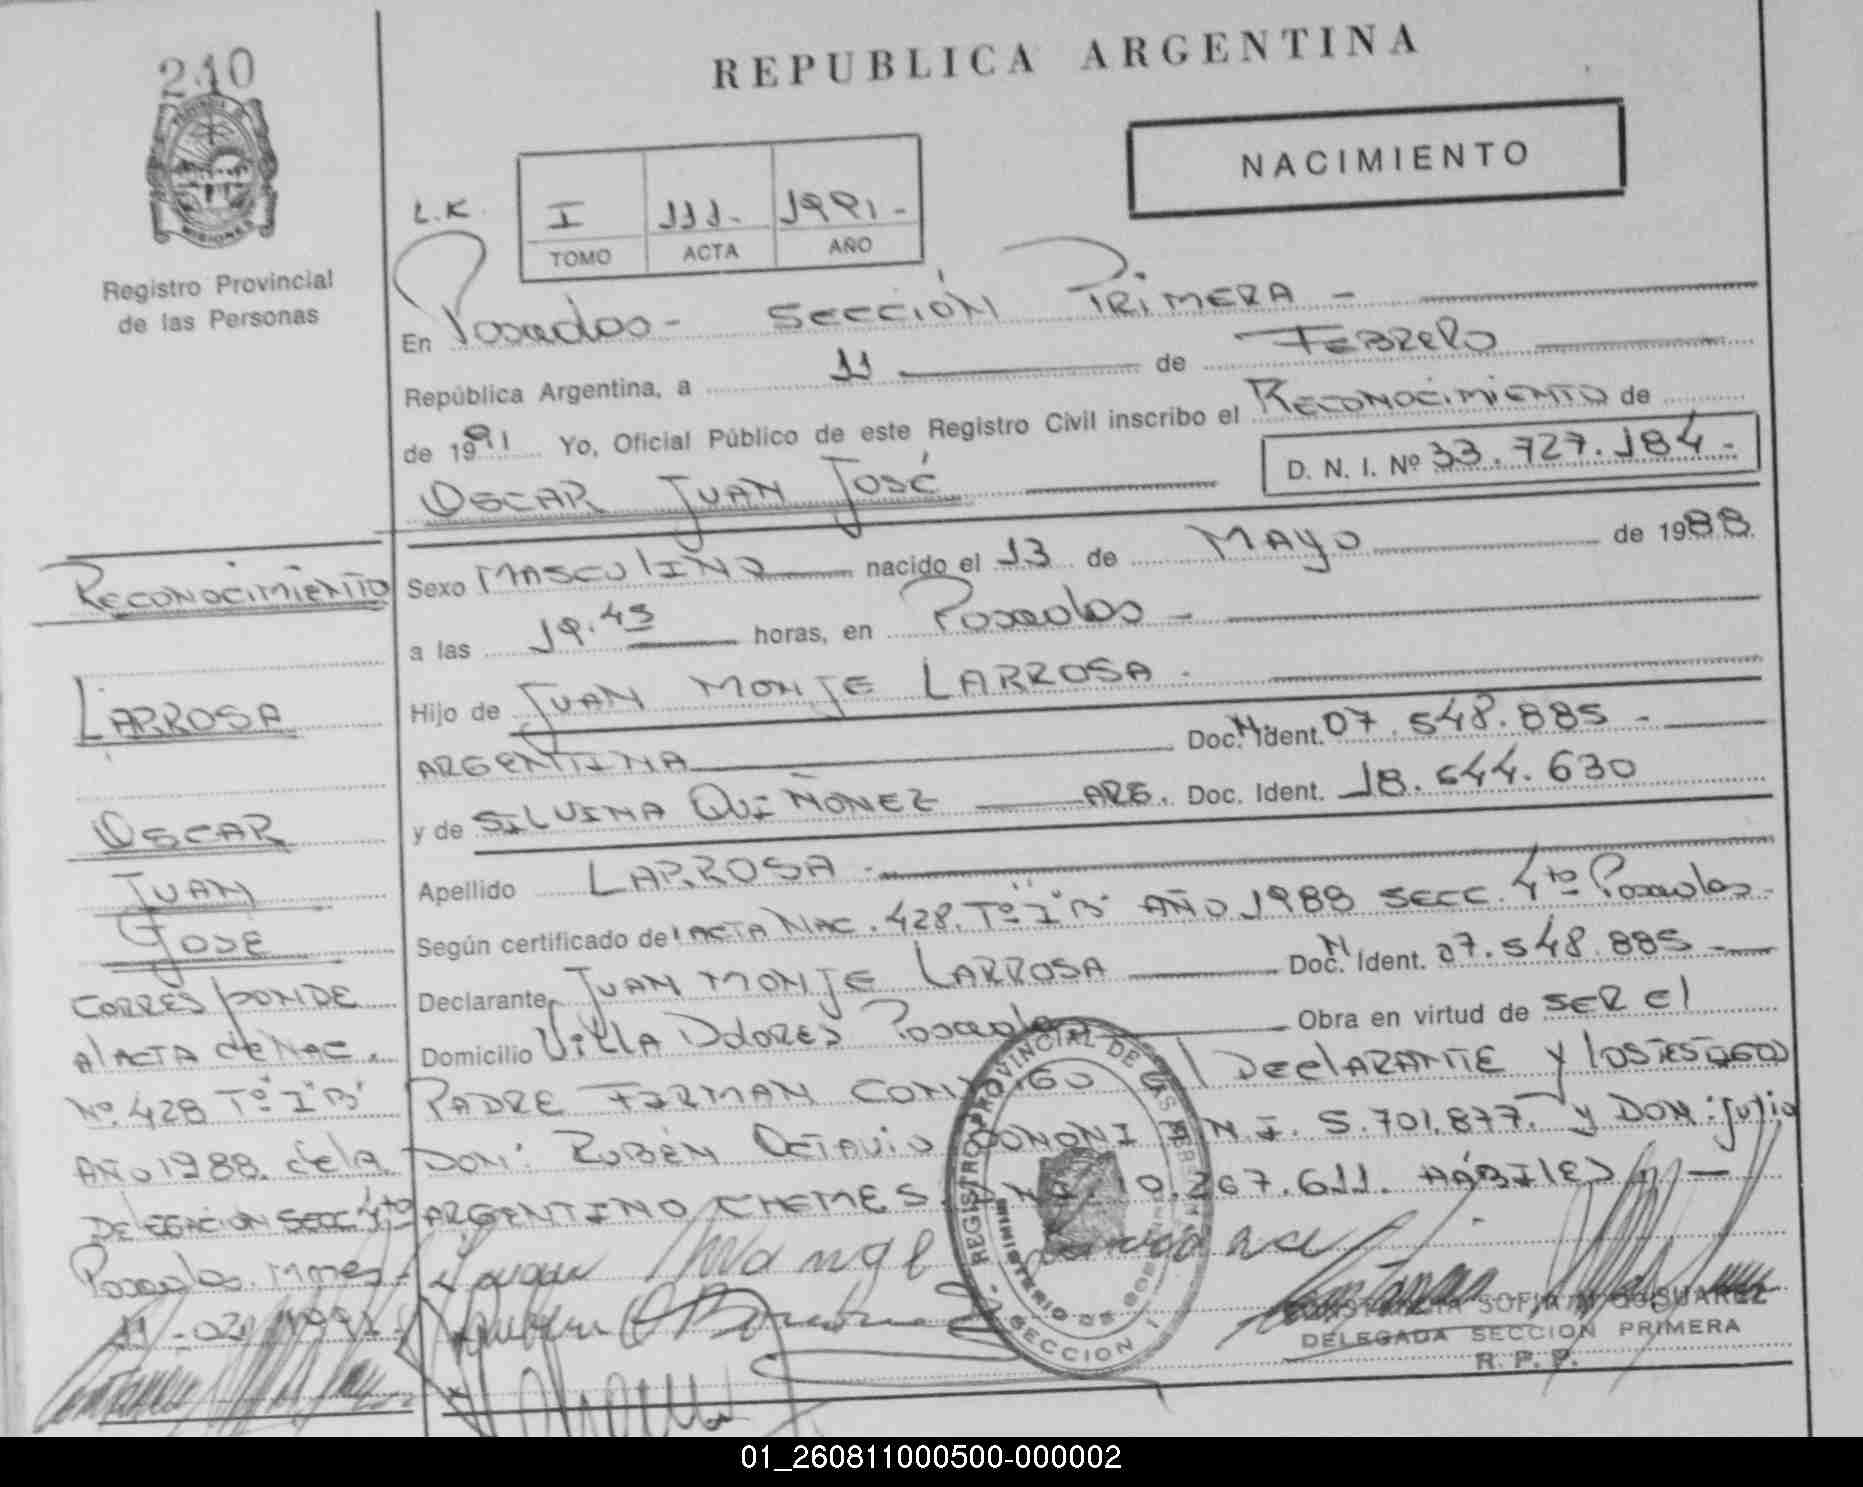 240
PROVINCIA DE MISIONES
Registro Provincial
de las Personas
REPUBLICA ARGENTINA
NACIMIENTO
L.K.
I 111.- 1991.-
TOMO ACTA AÑO
En Posadas - SECCIÓN PRIMERA -
República Argentina, a 11 de FEBRERO
de 1991 Yo, Oficial Público de este Registro Civil inscribo el RECONOCIMIENTO de
OSCAR JUAN JOSÉ
D. N. I. Nº 33.727.184.-
Sexo MASCULINO nacido el 13 de MAYO de 1988.
a las 19.45 horas, en Posadas -
Hijo de JUAN MONJE LARROSA.
ARGENTINA Doc. M. Ident. 07.548.885 -
y de SILVINA QUIÑONEZ ARG. Doc. Ident. 18.644.630
Apellido LARROSA.
Según certificado de ACTA NAC. 428. Tº "I" "B" AÑO 1988 SECC. 4to Posadas.-
Declarante JUAN MONJE LARROSA Doc. M Ident. 07.548.885 -
Domicilio VILLA DOLORES Posadas Obra en virtud de SER El
PADRE FIRMAN CONMIGO El DEClARANTE y los TESTIGOS
DON: RUBÉN OCTAVIO BONONI D.N.I. 5.701.877. y DON: Julio
ARGENTINO CHEMES. D.N.I. 10.267.611. HÁBILES
RECONOCIMIENTO
LARROSA
OSCAR
JUAN
JOSE
CORRESPONDE
Al ACTA de NAC.
Nº 428 Tº "I" "B"
AÑO 1988. de la
DELEGACION SECC 4to
Posadas. Mnes.
11-02-1991.-
REGISTRO PROVINCIAL DE LAS PERSONAS
MINISTERIO DE GOBIERNO
SECCION 1
CONSTANCIA SOFIA SUAREZ
DELEGADA SECCION PRIMERA
R. P. P.
01_260811000500-000002